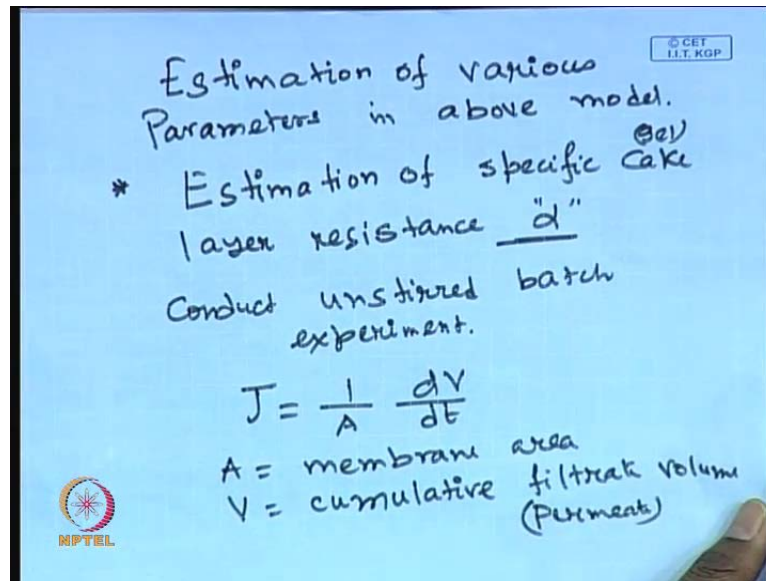 © CET
I.I.T. KGP
Estimation of various
Parameters in above model.
gel
* Estimation of specific Cake
layer resistance "α"
Conduct unstirred batch
experiment.
J = 1/A dV/dt
A = membrane area
V = cumulative filtrate volume
(Permeate)
NPTEL